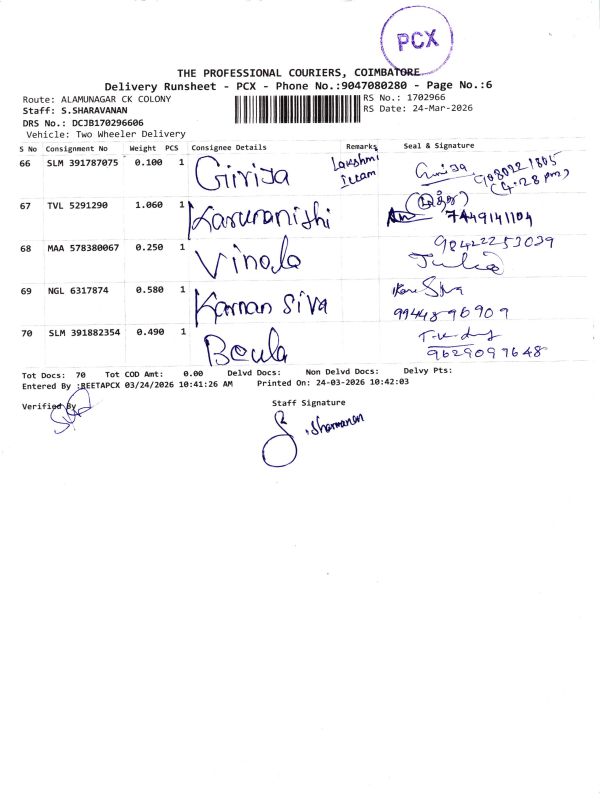 PCX
THE PROFESSIONAL COURIERS, COIMBATORE
Delivery Runsheet - PCX - Phone No.:9047080280 - Page No.:6
Route: ALAMUNAGAR CK COLONY
RS No.: 1702966
Staff: S.SHARAVANAN
RS Date: 24-Mar-2026
DRS No.: DCJB170296606
Vehicle: Two Wheeler Delivery
S No Consignment No Weight PCS Consignee Details Remarks Seal & Signature
66 SLM 391787075 0.100 1 Girija Lakshmi Illam Girija 9080221805
(4.28 pm)
67 TVL 5291290 1.060 1 Karunanithi 7449141104
68 MAA 578380067 0.250 1 Vinola 98422253039
Julia
69 NGL 6317874 0.580 1 Karnan Siva Siva
9944896909
70 SLM 391882354 0.490 1 Beula
9629097648
Tot Docs: 70 Tot COD Amt: 0.00 Delvd Docs: Non Delvd Docs: Delvy Pts:
Entered By :REETAPCX 03/24/2026 10:41:26 AM Printed On: 24-03-2026 10:42:03
Verified By
Staff Signature